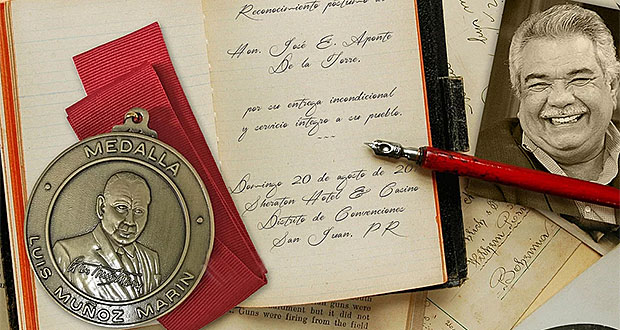 Reconocimiento póstumo al
Hon. José E. Aponte
De la Torre,
por su entrega incondicional
y servicio íntegro a su pueblo.
~~~
Domingo 20 de agosto de 20
Sheraton Hotel & Casino
Distrito de Convenciones
San Juan, PR
MEDALLA
LUIS MUÑOZ MARIN
Bohemia
but it did not
Guns were firing from the field